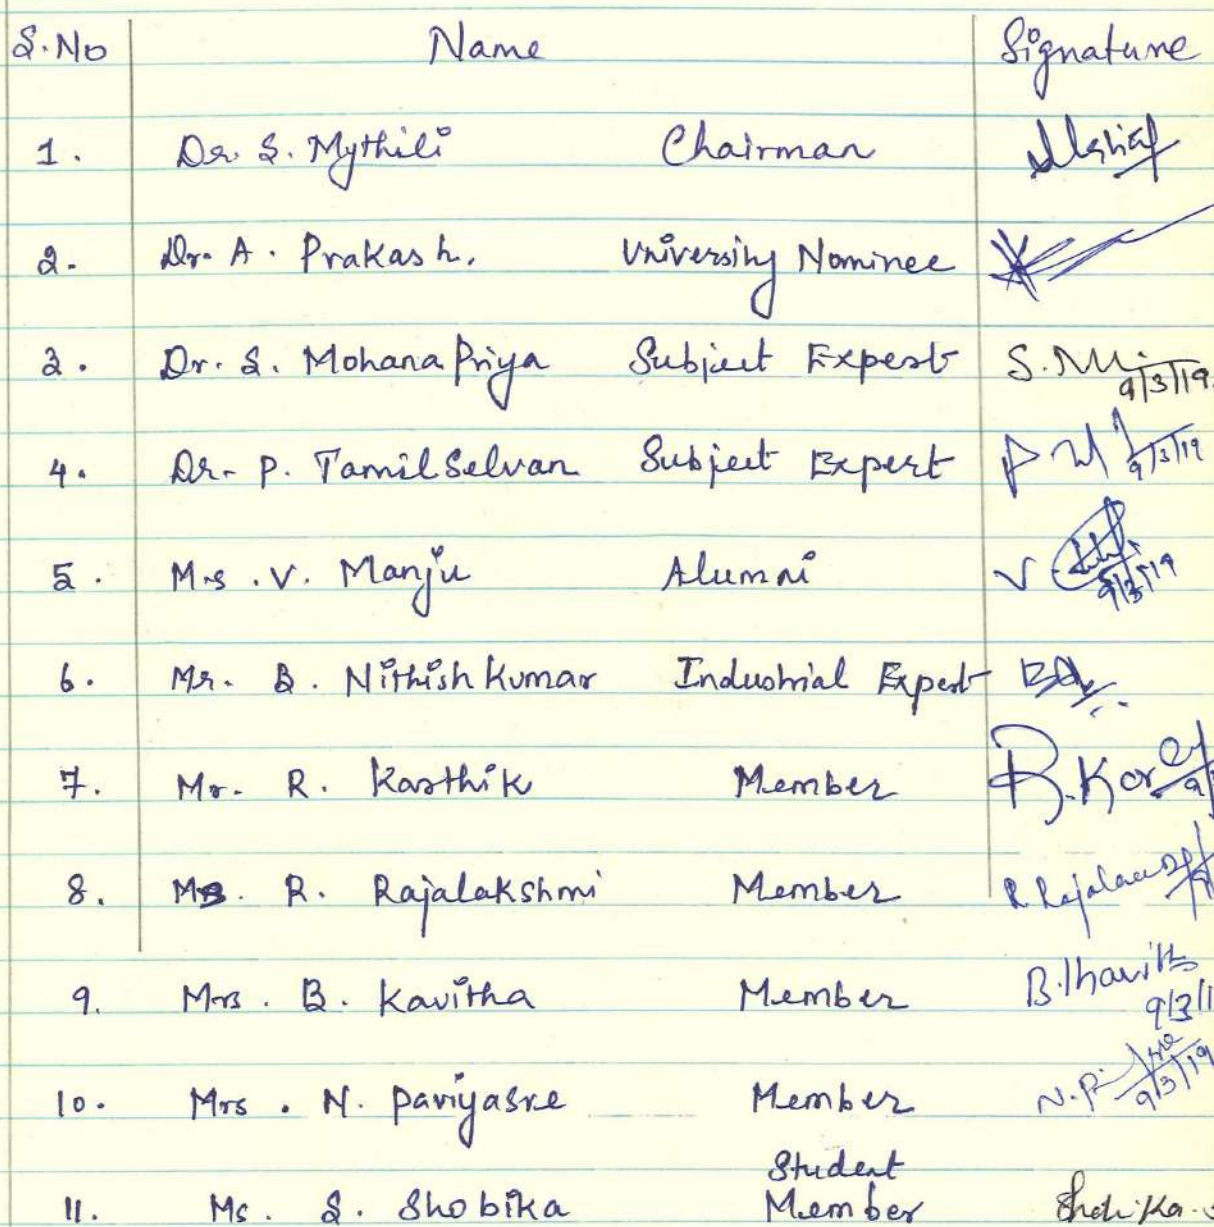 S.No Name Signature
1. Dr. S. Mythili Chairman
2. Dr. A. Prakash. University Nominee
3. Dr. S. MohanaPriya Subject Expert S. 9/3/19
4. Dr. P. TamilSelvan Subject Expert 9/3/19
5. Mrs. V. Manju Alumni V. 9/3/19
6. Mr. B. NithishKumar Industrial Expert
7. Mr. R. Karthik Member R.Kar
8. Ms. R. Rajalakshmi Member R Rajala
9. Mrs. B. Kavitha Member 9/3/1
10. Mrs. N. Paviyasre Member 9/3/19
Student
11. Ms. S. Shobika Member